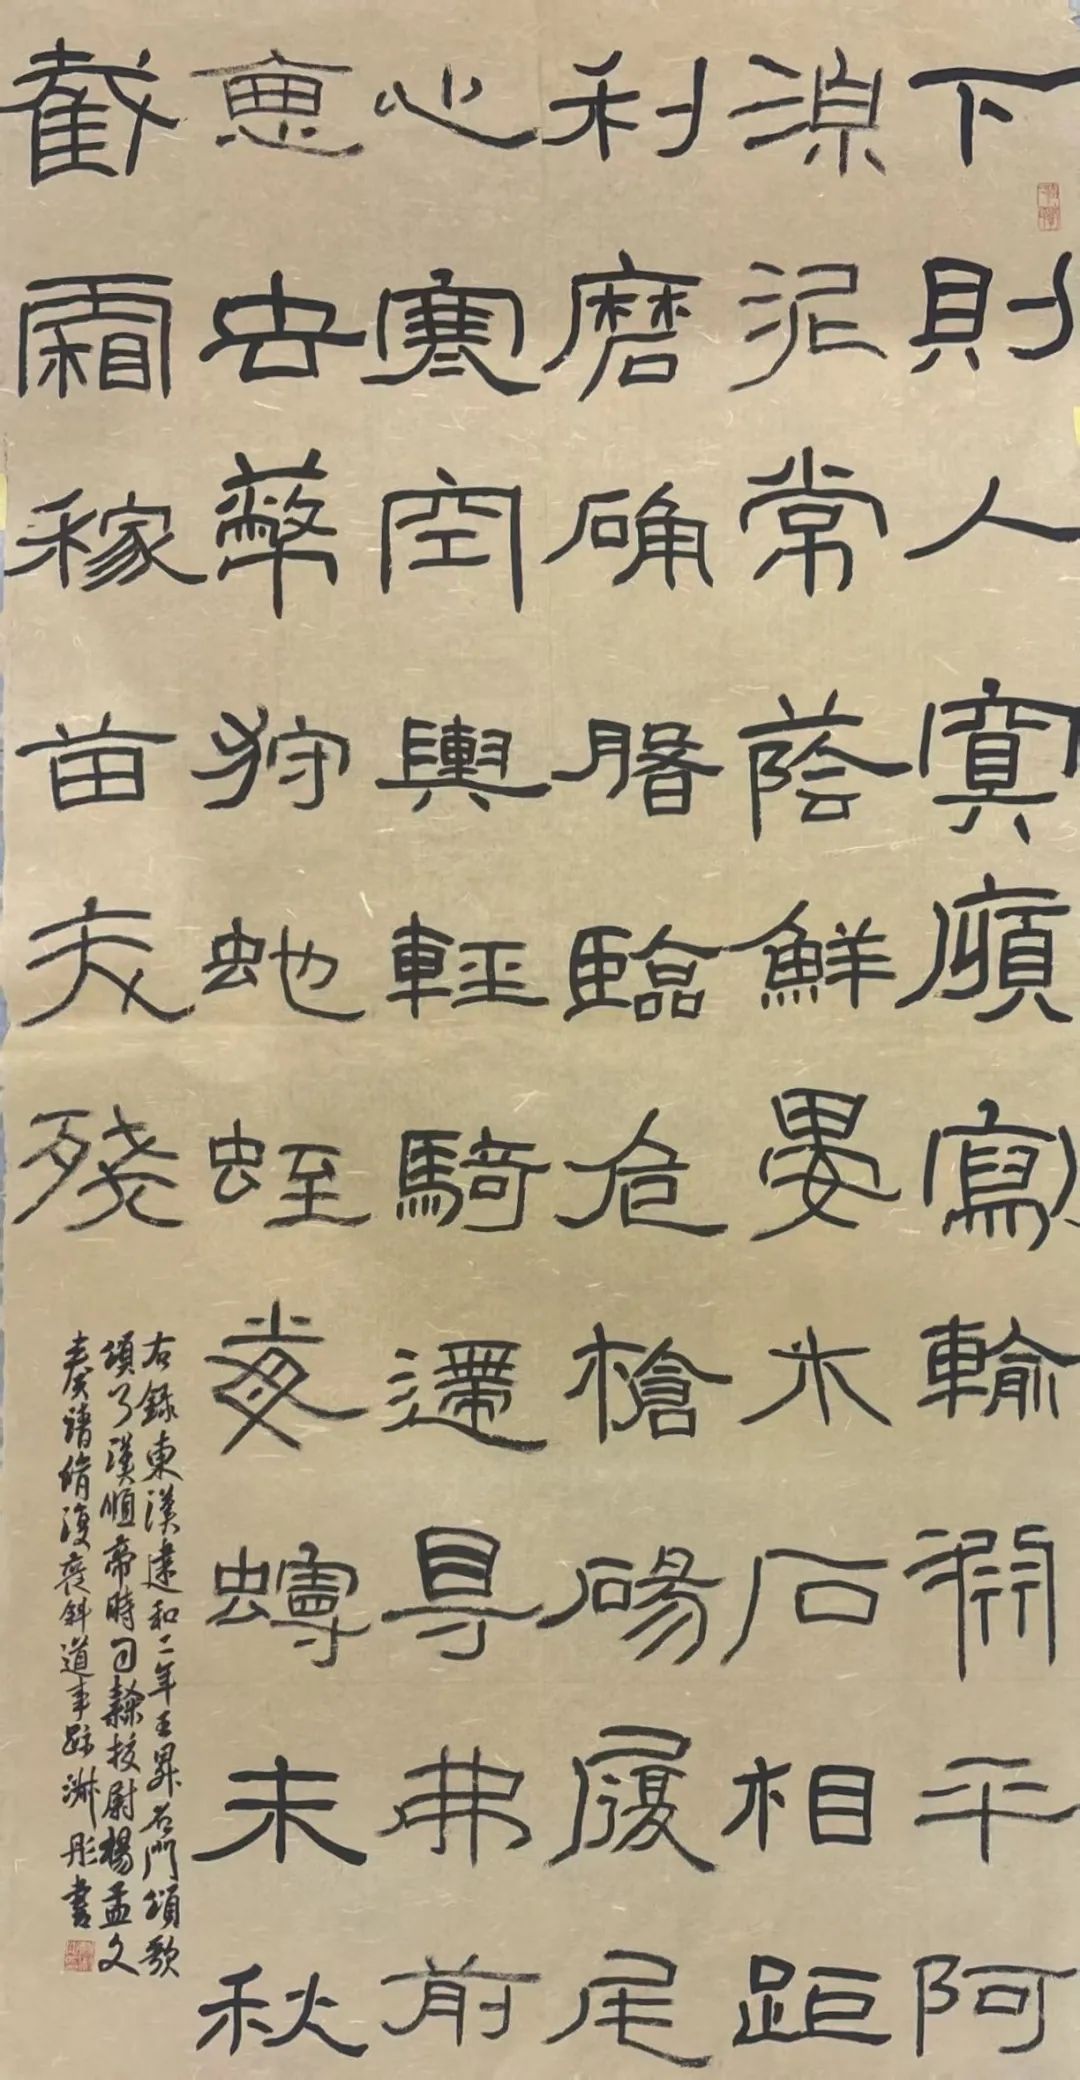 下則入冥廎寫輸淵平阿
湶泥常蔭鮮晏木石相距
利磨确磐臨危槍碭履尾
心寒空輿輕騎遰㝵弗前
惡虫蔽狩虵蛭毒蟃未秋
截霜稼苗夭殘
右錄東漢建和二年王昇石門頌歌
頌了漢順帝時司隸校尉楊孟文
奏請脩復褒斜道事跡 彤書